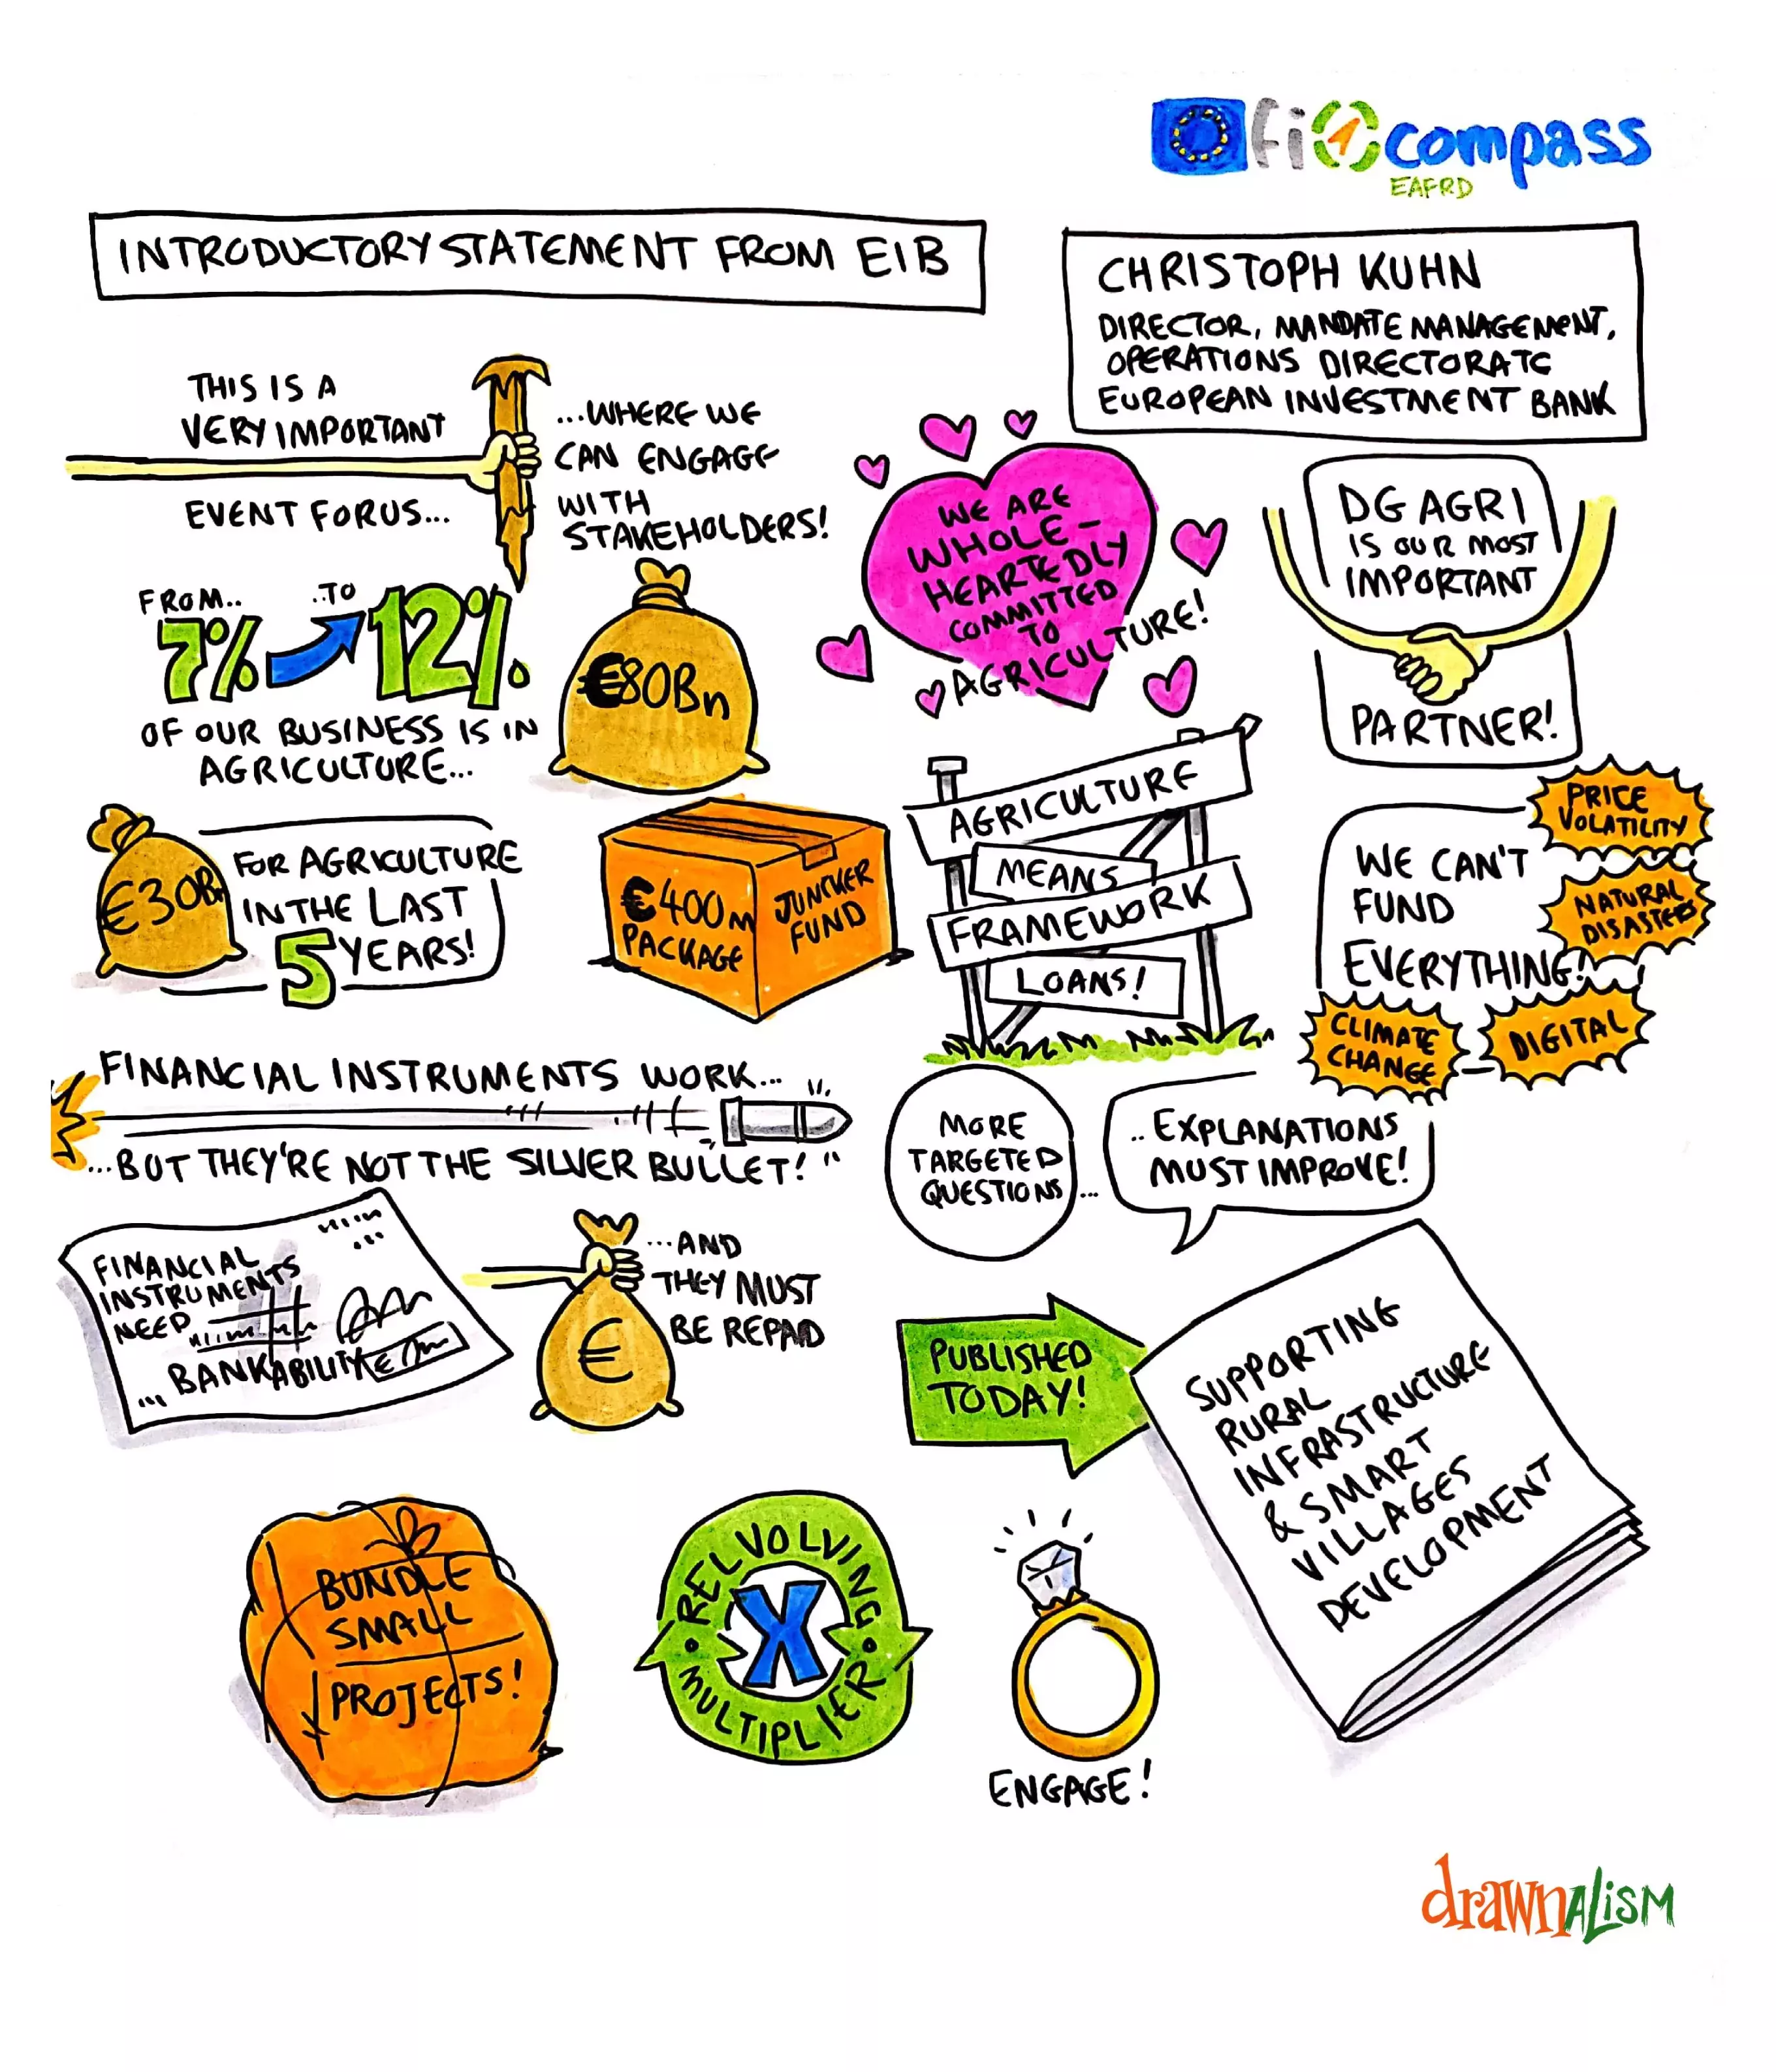 fi compass
EAFRD
INTRODUCTORY STATEMENT FROM EIB
CHRISTOPH KUHN
DIRECTOR, MANDATE MANAGEMENT,
OPERATIONS DIRECTORATE
EUROPEAN INVESTMENT BANK
THIS IS A
VERY IMPORTANT
EVENT FOR US...
...WHERE WE
CAN ENGAGE
WITH
STAKEHOLDERS!
WE ARE
WHOLE-
HEARTEDLY
COMMITTED
TO
AGRICULTURE!
DG AGRI
IS OUR MOST
IMPORTANT
PARTNER!
FROM..
..TO
7%
12%
OF OUR BUSINESS IS IN
AGRICULTURE...
€80Bn
€30Bn
FOR AGRICULTURE
IN THE LAST
5 YEARS!
€400m
PACKAGE
JUNCKER
FUND
AGRICULTURE
MEANS
FRAMEWORK
LOANS!
WE CAN'T
FUND
EVERYTHING!
PRICE
VOLATILITY
NATURAL
DISASTERS
CLIMATE
CHANGE
DIGITAL
FINANCIAL INSTRUMENTS WORK...
...BUT THEY'RE NOT THE SILVER BULLET!"
MORE
TARGETED
QUESTIONS...
..EXPLANATIONS
MUST IMPROVE!
FINANCIAL
INSTRUMENTS
NEED
... BANKABILITY
...AND
THEY MUST
BE REPAID
€
PUBLISHED
TODAY!
SUPPORTING
RURAL
INFRASTRUCTURE
& SMART
VILLAGES
DEVELOPMENT
BUNDLE
SMALL
PROJECTS!
RELVOLVING
X
MULTIPLIER
ENGAGE!
drawnalism